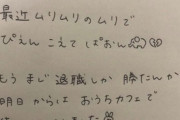 最近 ムリムリのムリで
ぴえん こえて ぱおん
もう まじ 退職しか 勝たんか
明日 からは おうちカフェで